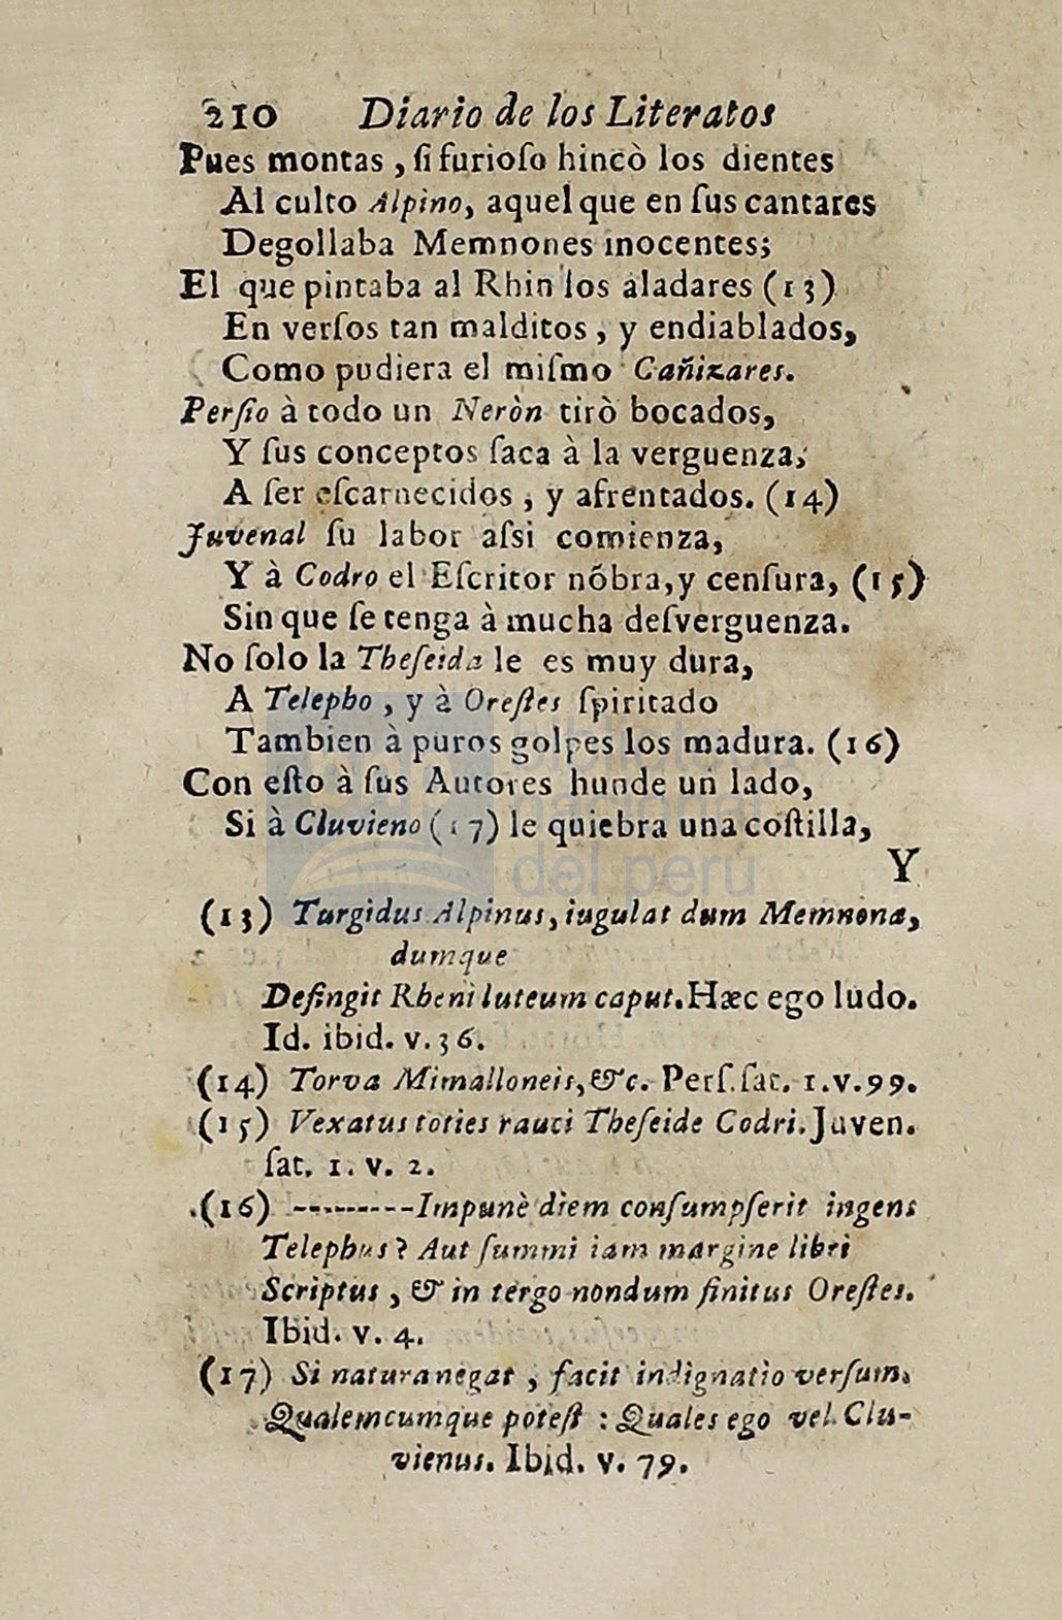 210 Diario de los Literatos
Pues montas , ſi furioſo hincò los dientes
Al culto Alpino, aquel que en ſus cantares
Degollaba Memnones inocentes;
El que pintaba al Rhin los aladares (13)
En verſos tan malditos , y endiablados,
Como pudiera el miſmo Cañizares.
Perſio à todo un Neròn tirò bocados,
Y ſus conceptos ſaca à la verguenza,
A ſer eſcarnecidos , y afrentados. (14)
Juvenal ſu labor aſsi comienza,
Y à Codro el Eſcritor nõbra, y cenſura, (15)
Sin que ſe tenga à mucha deſverguenza.
No ſolo la Theſeida le es muy dura,
A Telepho , y à Oreſtes ſpiritado
Tambien à puros golpes los madura. (16)
Con eſto à ſus Autores hunde un lado,
Si à Cluvieno (17) le quiebra una coſtilla,
Y
(13) Turgidus Alpinus, iugulat dum Memnona,
dumque
Defingit Rheni luteum caput. Hæc ego ludo.
Id. ibid. v. 36.
(14) Torva Mimalloneis, &c. Perſ. ſat. 1. v. 99.
(15) Vexatus toties rauci Theſeide Codri. Juven.
ſat. 1. v. 2.
(16) ---------Impunè diem conſumpſerit ingens
Telephus? Aut ſummi iam margine libri
Scriptus , & in tergo nondum finitus Oreſtes.
Ibid. v. 4.
(17) Si natura negat , facit indignatio verſum.
Qualemcumque poteſt : Quales ego vel Clu-
vienus. Ibid. v. 79.
biblioteca
nacional
del perú